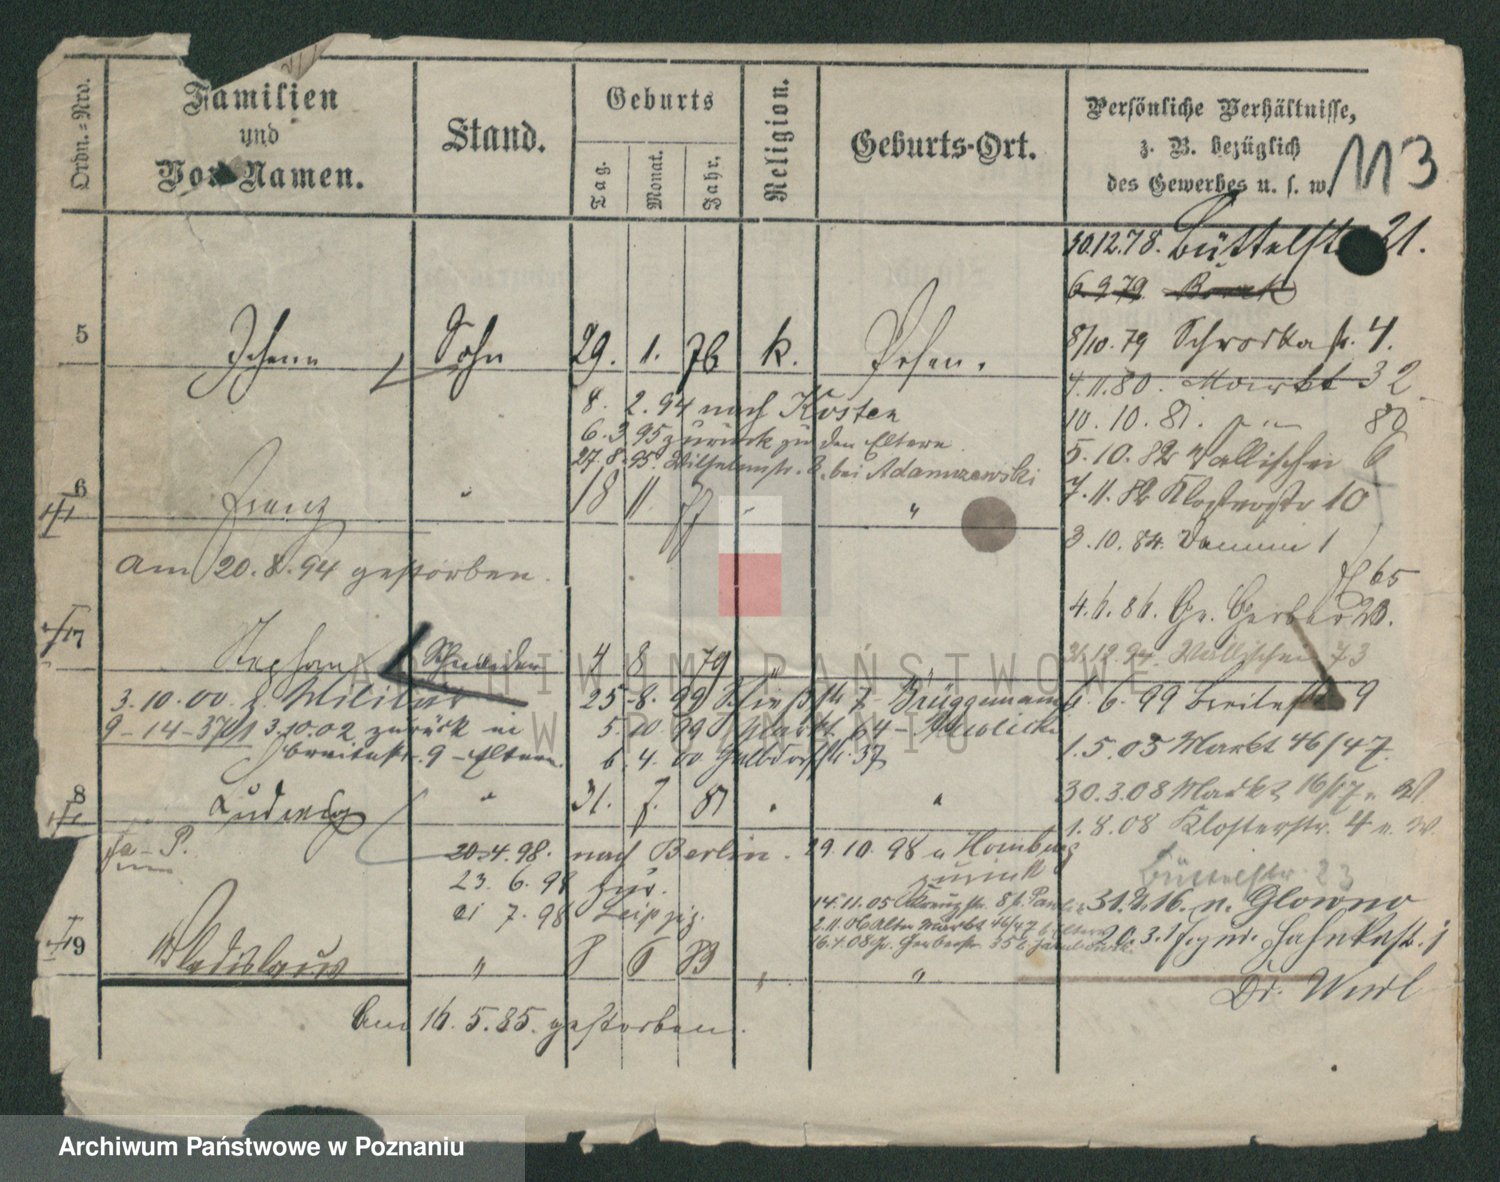 Ordn.-Nro.
Familien
und
Vor-Namen.
Stand.
Geburts
Tag.
Monat.
Jahr.
Religion.
Geburts-Ort.
Persönliche Verhältnisse,
z. B. bezüglich
des Gewerbes u. s. w.
113
30.12.78. Büttelstr. 21.
6.9.79.
8/10.79 Schrodka 4.
5 Johann Sohn 29. 1. 76 k. Posen.
4.11.80. Markt 32
8. 2.94 nach Kosten
10.10.81. 80
6.3.95 zurück zu den Eltern
5.10.82 Wallischei 6
27.8.95. Wilhelmstr. 8. bei Adamczewski
7.11.82 Klosterstr 10
6 Franz " 18 11 77 " "
3.10.84. Damm 1
am 20.8.94 gestorben.
65
4.6.86. Gr. Gerber 23.
7 Stephan Schneider 4 8 79 "
31.12.94. Wallischei 73
3.10.00 z. Militär
25-8.99 7 Brüggemann
6.6.99 Breitestr 9
3.10.02 zurück in
5.10.99 Markt 64
Breitestr. 9 - Eltern.
6.4.00 Halbdorfstr. 37
1.5.05 Markt 46/47.
8 Ludwig " 31. 7. 81 " "
30.3.08 Markt
1.8.08 Klosterstr. 4
20.4.98. nach Berlin. 29.10.98 v Homburg
zurück
23. 6. 98 zur.
Büttelstr. 23
21 7.98 Leipzig.
14.11.05 Kreuzstr.
31.2.16. n. Glowno
2.11.06 Alter Markt 46/47 b. Eltern
16.4.08 Gr. Gerberstr. 35
9 Wladislaus " 8 6 83 " "
Dr. Wurl
Am 16.5.85. gestorben.
ARCHIWUM PAŃSTWOWE
W POZNANIU
Archiwum Państwowe w Poznaniu